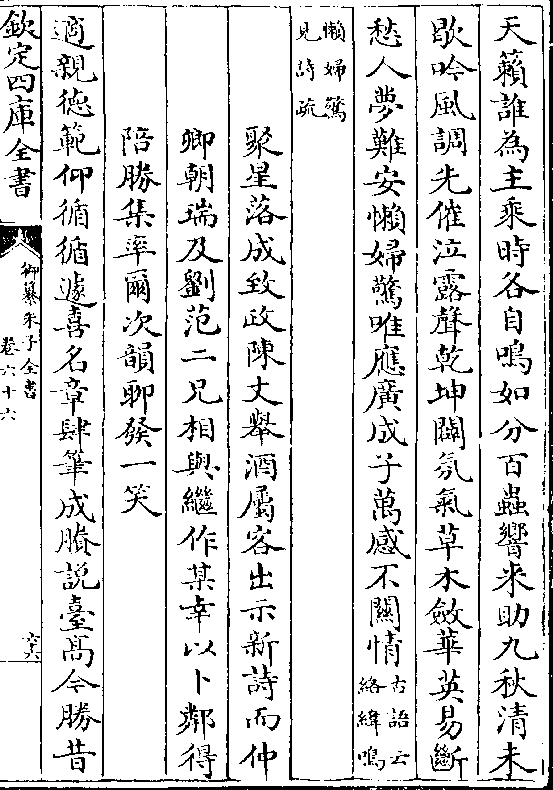 天籟誰為主乘時各自鳴如分百蟲響來助九秋清未
歇吟風調先催泣露聲乾坤闢氛氣草木斂華英易斷
愁人夢難安懶婦驚唯應廣成子萬感不關情古語云絡緯鳴
懶婦驚見詩疏
聚星落成致政陳丈舉酒屬客出示新詩而仲
卿朝瑞及劉范二兄相與繼作某幸以卜鄰得
陪勝集率爾次韻聊發一笑
適親德範仰循循遽喜名章肆筆成賸説臺髙今勝昔
欽定四庫全書
御纂朱子全書
卷六十六
六六